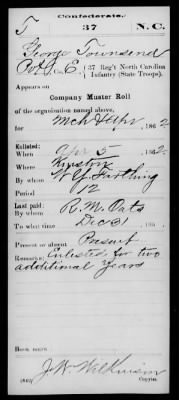 Confederate.
T 37 N.C.
George Townsend
Co. E, 37 Reg't North Carolina
Infantry (State Troops).
Appears on
Company Muster Roll
of the organization named above,
for Mch & Apr, 1862
Enlisted:
When Apr 5, 1862
Where Kinston
By whom W Y Farthing
Period 12
Last paid:
By whom R. M. Oats
To what time Dec 31, 186
Present or absent Present
Remarks: Enlisted for two
additional years
Book mark:
J. W. Wilkinson
Copyist.